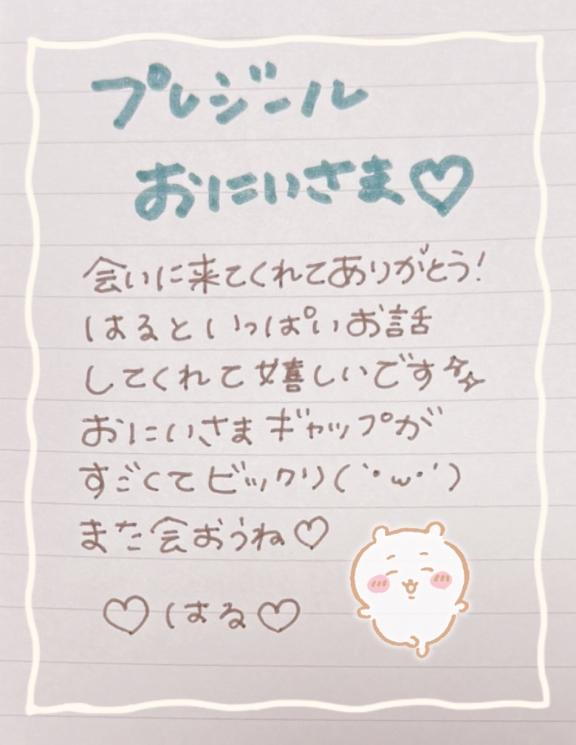 プレジール
おにいさま♡
会いに来てくれてありがとう!
はるといっぱいお話
してくれて嬉しいです✨
おにいさまギャップが
すごくてビックリ(`･ω･´)
また会おうね♡
♡はる♡